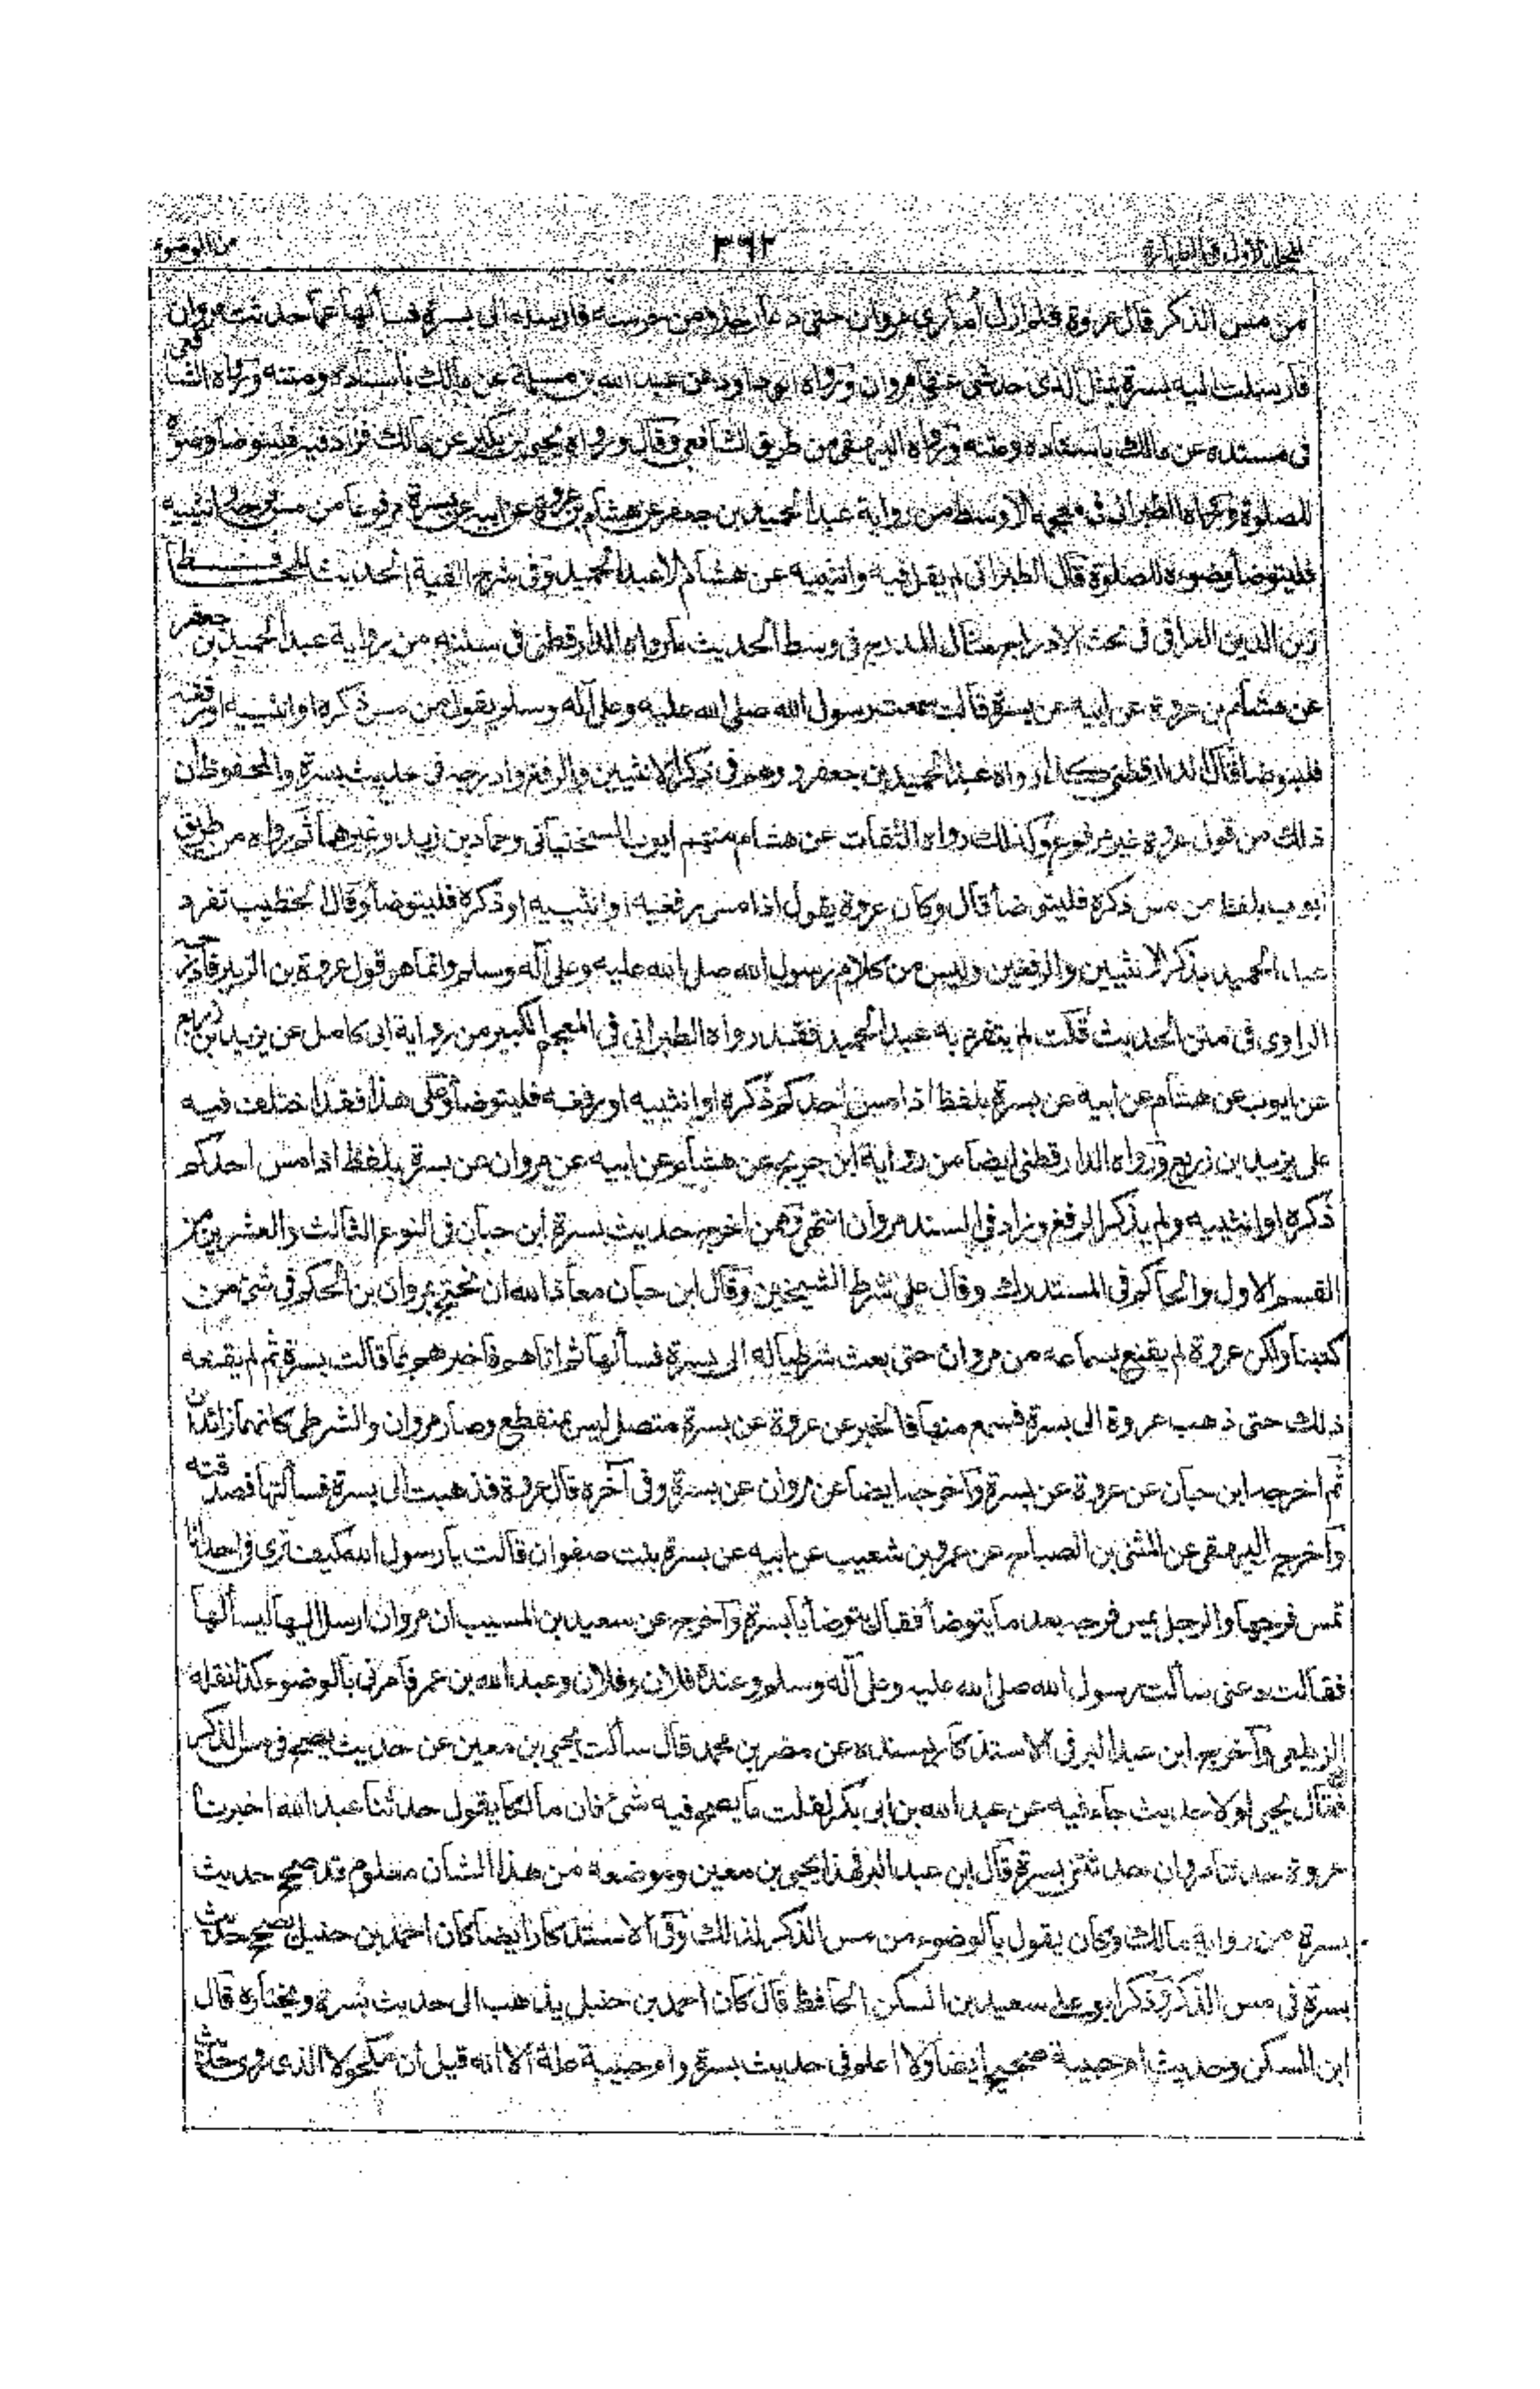 المجلد الاول فى الطهارة ٣٦٢ من الوضوء
من مس الذكر قال عروة فلم ازل أمارى مروان حتى دعا رجلا من حرسه فارسله الى بسرة فسألها عما حدثت مروان
فارسلت اليه بسرة بمثل الذى حدثنى عنها مروان ورواه ابو داود عن عبد الله بن مسلمة عن مالك باسناده ومتنه ورواه الشافعى
فى مسنده عن مالك باسناده ومتنه ورواه البيهقى من طريق الشافعى وقال ورواه يحيى بن بكير عن مالك فزاد فيه فليتوضأ وضوءه
للصلوة ورواه الطبرانى فى معجمه الاوسط من رواية عبد الحميد بن جعفر عن هشام بن عروة عن ابيه عن بسرة مرفوعا من مس فرجه او انثييه
فليتوضأ وضوءه للصلوة قال الطبرانى لم يقل فيه وانثييه عن هشام الا عبد الحميد وفى شرح الفية الحديث للحافظ
زين الدين العراقى فى بحث الادراج مثال المدرج فى وسط الحديث ما رواه الدارقطنى فى سننه من رواية عبد الحميد بن جعفر
عن هشام بن عروة عن ابيه عن بسرة قالت سمعت رسول الله صلى الله عليه وعلى آله وسلم يقول من مس ذكره او انثييه او رفغه
فليتوضأ قال الدارقطنى كذا رواه عبد الحميد بن جعفر ووهم فى ذكر الانثيين والرفغ وادرجه فى حديث بسرة والمحفوظ ان
ذلك من قول عروة غير مرفوع وكذلك رواه الثقات عن هشام منهم ايوب السختيانى وحماد بن زيد وغيرهما ثم رواه من طريق
ايوب بلفظ من مس ذكره فليتوضأ قال وكان عروة يقول اذا مس رفغيه او انثييه او ذكره فليتوضأ وقال الخطيب تفرد
عبد الحميد بذكر الانثيين والرفغين وليس من كلام رسول الله صلى الله عليه وعلى آله وسلم وانما هو قول عروة بن الزبير فادرجه
الراوى فى متن الحديث قلت لم يتفرد به عبد الحميد فقد رواه الطبرانى فى المعجم الكبير من رواية ابى كامل عن يزيد بن زريع
عن ايوب عن هشام عن ابيه عن بسرة بلفظ اذا مس احدكم ذكره او انثييه او رفغه فليتوضأ وعلى هذا فقد اختلف فيه
على يزيد بن زريع ورواه الدارقطنى ايضا من رواية ابن جريج عن هشام عن ابيه عن مروان عن بسرة بلفظ اذا مس احدكم
ذكره او انثييه ولم يذكر الرفغ وزاد فى السند مروان انتهى وممن اخرج حديث بسرة ابن حبان فى النوع الثالث والعشرين من
القسم الاول والحاكم فى المستدرك وقال على شرط الشيخين وقال ابن حبان معاذ الله ان نحتج بمروان بن الحكم فى شئ من
كتبنا ولكن عروة لم يقنع بسماعه من مروان حتى بعث شرطيا له الى بسرة فسألها ثم اتاهم فاخبرهم بما قالت بسرة ثم لم يقنعه
ذلك حتى ذهب عروة الى بسرة فسمع منها فالخبر عن عروة عن بسرة متصل ليس بمنقطع وصار مروان والشرطى كانهما زائدان
ثم اخرجه ابن حبان عن عروة عن بسرة وآخرجه ايضا عن مروان عن بسرة وفى آخره قال عروة فذهبت الى بسرة فسألتها فصدقته
وآخرج البيهقى عن المثنى بن الصباح عن عمرو بن شعيب عن ابيه عن بسرة بنت صفوان قالت يا رسول الله كيف ترى فى احدانا
تمس فرجها والرجل يمس فرجه بعد ما يتوضأ فقال يتوضأ يا بسرة وآخرجه عن سعيد بن المسيب ان مروان ارسل اليها ليسألها
فقالت دعنى سألت رسول الله صلى الله عليه وعلى آله وسلم وعنده فلان وفلان وعبد الله بن عمر فامرنى بالوضوء كذا نقله
الزيلعى وآخرج ابن عبد البر فى الاستذكار بسنده عن مضر بن محمد قال سألت يحيى بن معين عن حديث يصح فى مس الذكر
فقال يحيى لولا حديث جاء فيه عن عبد الله بن ابى بكر لقلت ما يصح فيه شئ فان مالكا يقول حدثنا عبد الله اخبرنا
عروة حدثنا مروان حدثتنى بسرة قال ابن عبد البر فهذا يحيى بن معين وموضعه من هذا الشأن معلوم قد صحح حديث
بسرة من رواية مالك وكان يقول بالوضوء من مس الذكر لذلك وفى الاستذكار ايضا كان احمد بن حنبل يصحح حديث
بسرة فى مس الذكر وذكر ابو على سعيد بن السكن الحافظ قال كان احمد بن حنبل يذهب الى حديث بسرة ويختاره قال
ابن السكن وحديث ام حبيبة صحيح ايضا ولا اعلم فى حديث بسرة وام حبيبة علة الا انه قيل ان مكحولا الذى روى حديث